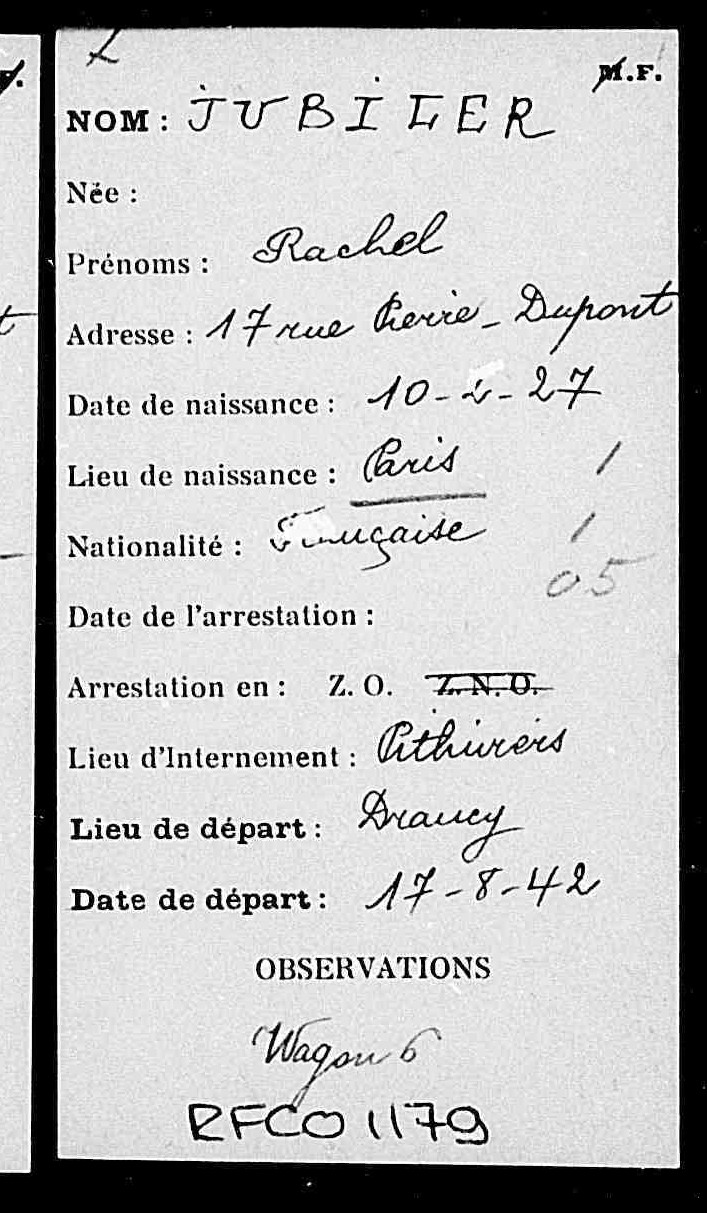 M.F.
NOM : JUBILER
Née :
Prénoms : Rachel
Adresse : 17 rue Pierre-Dupont
Date de naissance : 10-2-27
Lieu de naissance : Paris /
Nationalité : Française /
05
Date de l'arrestation :
Arrestation en : Z. O. Z. N. O.
Lieu d'Internement : Pithiviers
Lieu de départ : Drancy
Date de départ : 17-8-42
OBSERVATIONS
Wagon 6
RFCO 1179